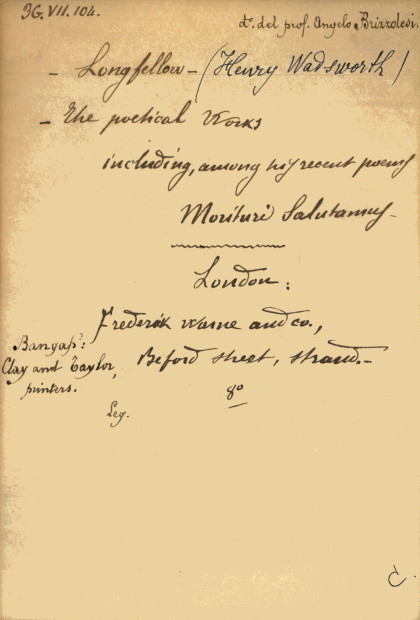 36.VII.104.
d. del prof. Angelo Brizzolesi.
- Longfellow - (Henry Wadsworth)
- The poetical Works
including, among his recent poems
Morituri Salutamus -
London:
Frederik Warne and co.,
Beford street, strand. -
8°
Clay and Taylor,
printers.
Leg.
C.